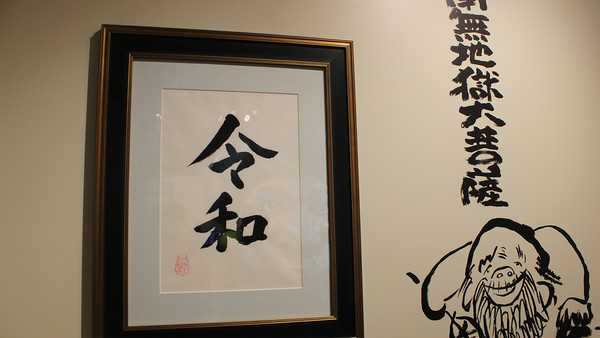 令和
南無地獄大菩薩